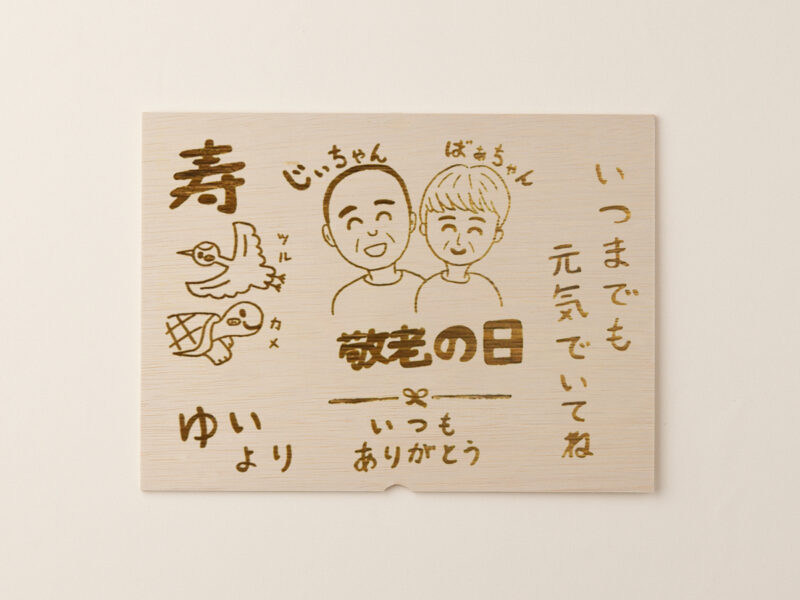 寿
じぃちゃん
ばぁちゃん
ツル
カメ
敬老の日
いつも
ありがとう
いつまでも
元気でいてね
ゆい
より